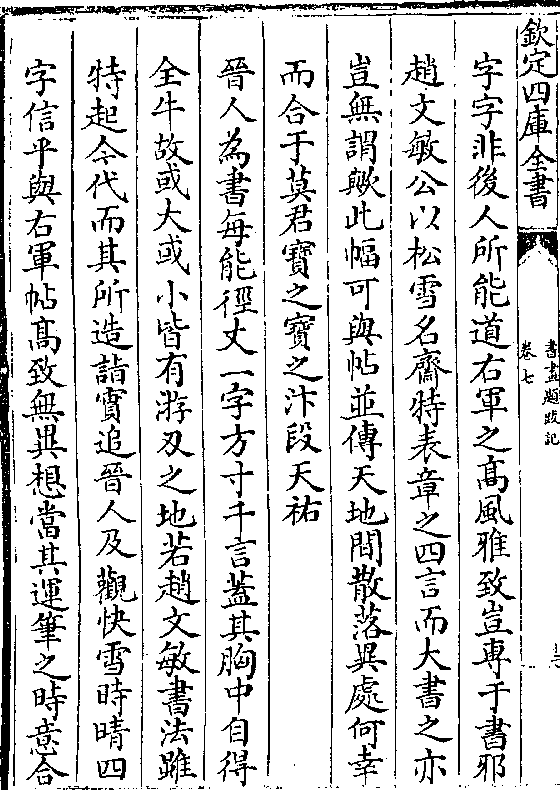 欽定四庫全書
書畫題跋記
卷七
字字非後人所能道右軍之髙風雅致豈専于書邪
趙文敏公以松雪名齋特表章之四言而大書之亦
豈無謂歟此幅可與帖並傳天地間散落異處何幸
而合于莫君寶之寶之汴段天祐
晉人為書每能徑丈一字方寸千言蓋其胸中自得
全牛故或大或小皆有游刃之地若趙文敏書法雖
特起今代而其所造詣實追晉人及觀快雪時晴四
字信乎與右軍帖髙致無異想當其運筆之時意合